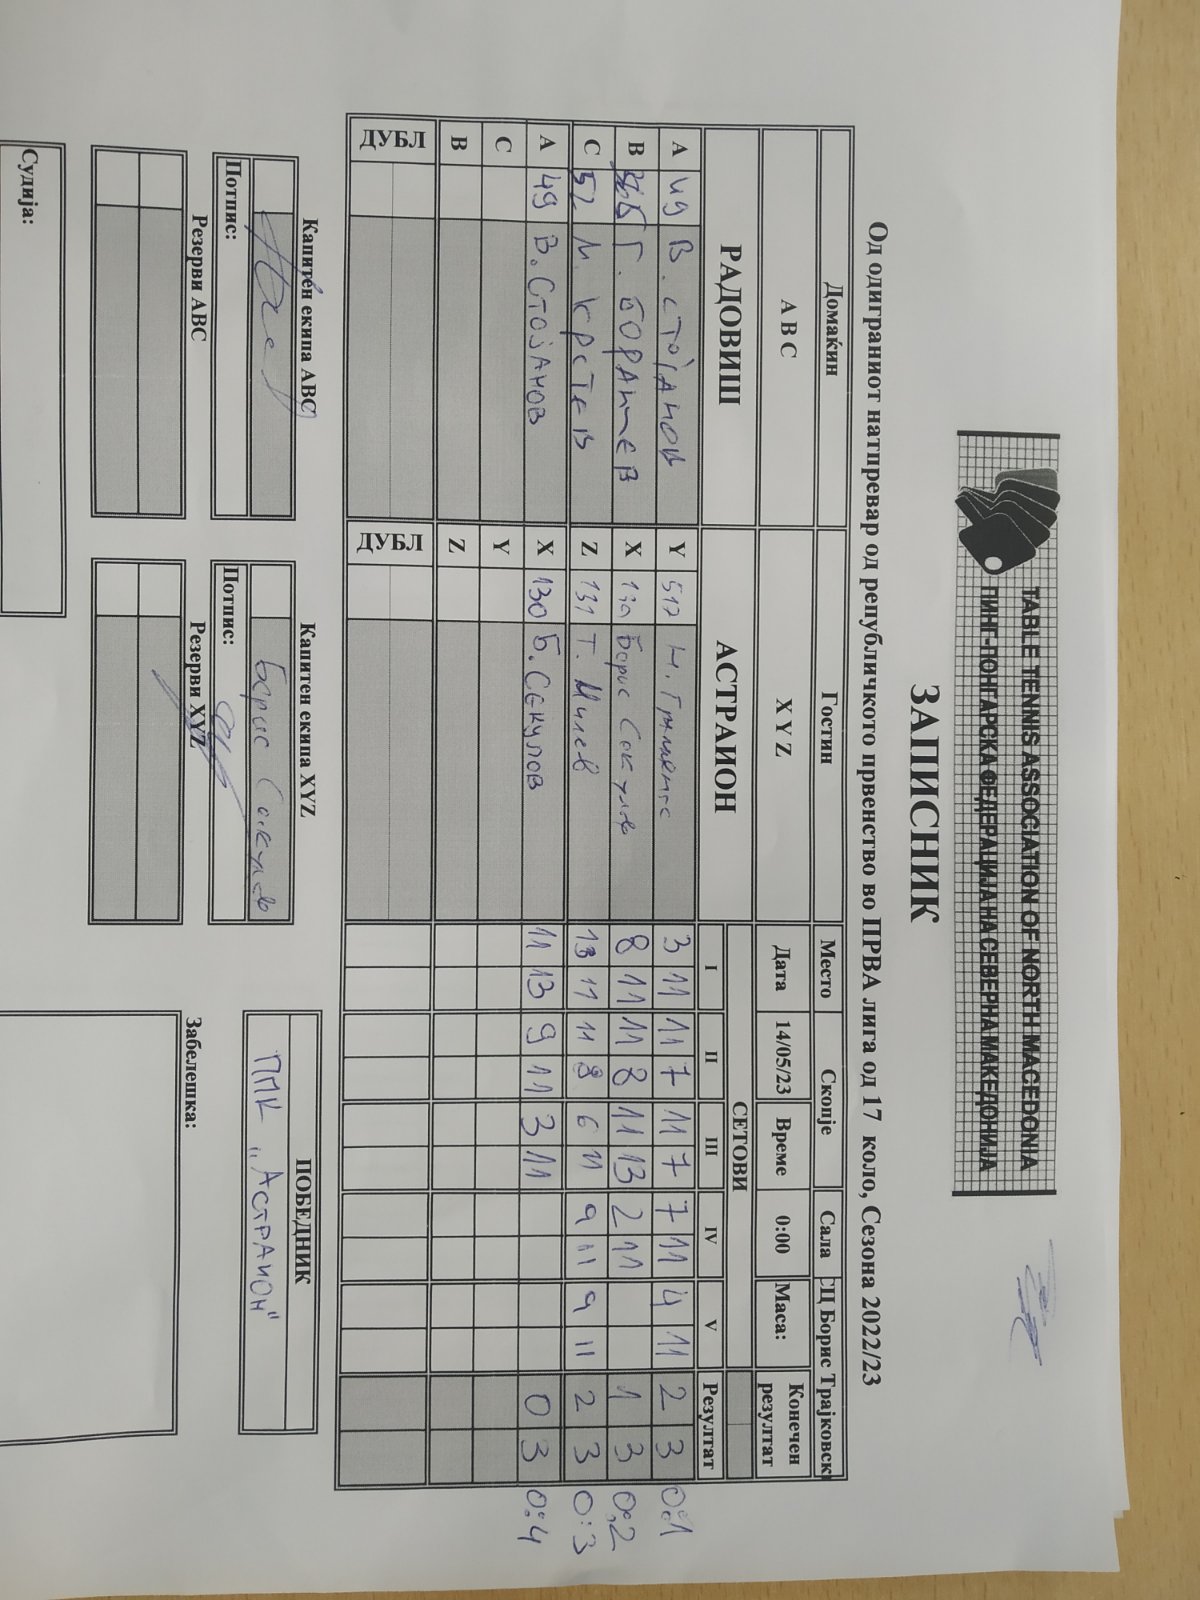 TABLE TENNIS ASSOCIATION OF NORTH MACEDONIA
ПИНГ-ПОНГАРСКА ФЕДЕРАЦИЈА НА СЕВЕРНА МАКЕДОНИЈА
ЗАПИСНИК
Од одиграниот натпревар од републичкото првенство во ПРВА лига од 17 коло, Сезона 2022/23
Домаќин Гостин Место Скопје Сала СЦ Борис Трајковск
A B C X Y Z Дата 14/05/23 Време 0:00 Маса: Конечен резултат
РАДОВИШ АСТРАИОН СЕТОВИ
I II III IV V Резултат
A 49 В. СТОЈАНОВ Y 517 Н. 3 11 11 7 11 7 7 11 4 11 2 3 0:1
B Г. X Борис Секулов 8 11 11 8 11 13 2 11 1 3 0:2
C 52 М. КРСТЕВ Z 131 Т. Милев 13 11 11 8 6 11 9 11 9 11 2 3 0:3
A 49 В. СТОЈАНОВ X 130 Б. СЕКУЛОВ 11 13 9 11 3 11 0 3 0:4
C Y
B Z
ДУБЛ ДУБЛ
Капитен екипа ABC Капитен екипа XYZ ПОБЕДНИК
Борис Секулов ПМК „АСТРАИОН"
Потпис: Потпис:
Резерви ABC Резерви XYZ Забелешка:
Судија: